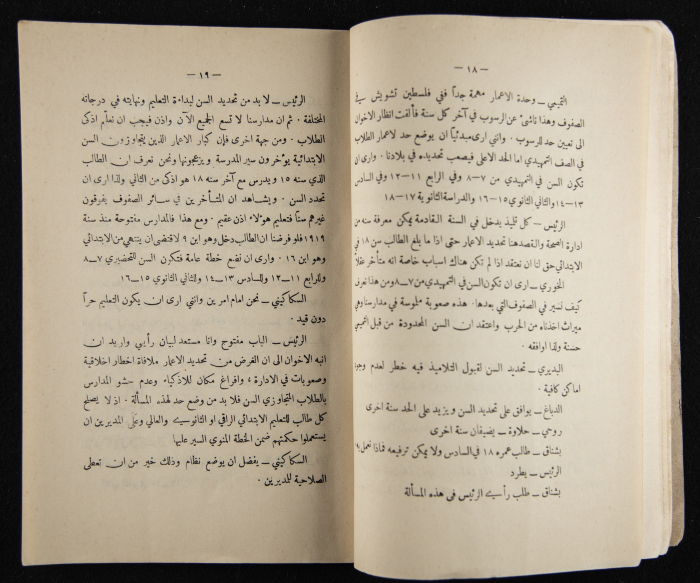 — ١٨ —
التميمي — وحدة الاعمار مهمة جداً ففي فلسطين تشويش في
الصفوف وهذا ناشئ عن الرسوب في آخر كل سنة فألفت انظار الاخوان
الى تعيين حد للرسوب . وانني ارى مبدئياً ان يوضع حد لاعمار الطلاب
في الصف التمهيدي اما الحد الاعلى فيصعب تحديده في بلادنا . وارى ان
تكون السن في التمهيدي من ٧—٨ وفي الرابع ١١—١٢ وفي السادس
١٣—١٤ والثاني الثانوي ١٥—١٦ والدراسة الثانوية ١٧—١٨
الرئيس — كل تلميذ يدخل في السنة القادمة يمكن معرفة سنه من
ادارة الصحة والقصد هنا تحديد الاعمار حتى اذا ما بلغ الطالب سن ١٨ في
الابتدائي حق لنا ان نعتقد اذا لم تكن هناك اسباب خاصة انه متأخر عقلا
الخوري — ارى ان تكون السن في التمهيدي من ٧—٨ ومن هذا نعرف
كيف نسير في الصفوف التي بعدها . هذه صعوبة ملموسة في مدارسنا وهي
ميراث اخذناه من الحرب واعتقد ان السن المحدودة من قبل التميمي
حسنة ولذا اوافقه .
البديري — تحديد السن لقبول التلاميذ فيه خطر لعدم وجود
اماكن كافية .
الدباغ — يوافق على تحديد السن ويزيد على الحد سنة اخرى
روحي — حلاوة — يضيفان سنة اخرى
بشناق — طالب عمره ١٨ في السادس ولا يمكن ترفيعه فماذا نعمل به
الرئيس — يطرد
بشناق — طلب رأي الرئيس في هذه المسألة
— ١٩ —
الرئيس — لا بد من تحديد السن لبداءة التعليم ونهايته في درجاته
المختلفة . ثم ان مدارسنا لا تسع الجميع الآن واذن فيجب ان نعلّم اذكى
الطلاب . ومن جهة اخرى فإن كبار الاعمار الذين يتجاوزون السن
الابتدائية يؤخرون سير المدرسة ويزعجونها ونحن نعرف ان الطالب
الذي سنه ١٥ ويدرس مع آخر سنه ١٨ هو اذكى من الثاني ولذا ارى ان
تحدد السن . ويشاهد ان المتأخرين في سائر الصفوف يفرقون
غيرهم سناً فتعليم هؤلاء اذن عقيم . ومع هذا فالمدارس مفتوحة منذ سنة
١٩١٩ فلو فرضنا ان الطالب دخل وهو ابن ٩ لاقتضى ان ينتهي من الابتدائي
وهو ابن ١٦ . وارى ان نضع خطة عامة فتكون السن للتحضيري ٧—٨
وللرابع ١١—١٢ وللسادس ١٣—١٤ وللثاني الثانوي ١٥—١٦
السكاكيني — نحن امام امرين وانني ارى ان يكون التعليم حراً
دون قيد .
الرئيس — الباب مفتوح وانا مستعد لبيان رأيي واريد ان
انبه الاخوان الى ان الغرض من تحديد الاعمار ملافاة اخطار اخلاقية
وصعوبات في الادارة ، وافراغ مكان للاذكياء وعدم حشو المدارس
بالطلاب المتجاوزي السن فلا بد من وضع حد لهذه المسألة . اذ لا يصلح
كل طالب للتعليم الابتدائي الراقي او الثانوي والعالي وعلى المديرين ان
يستعملوا حكمتهم ضمن الخطة المنوي السير عليها
السكاكيني — يفضل ان يوضع نظام وذلك خير من ان تعطى
الصلاحية للمديرين .